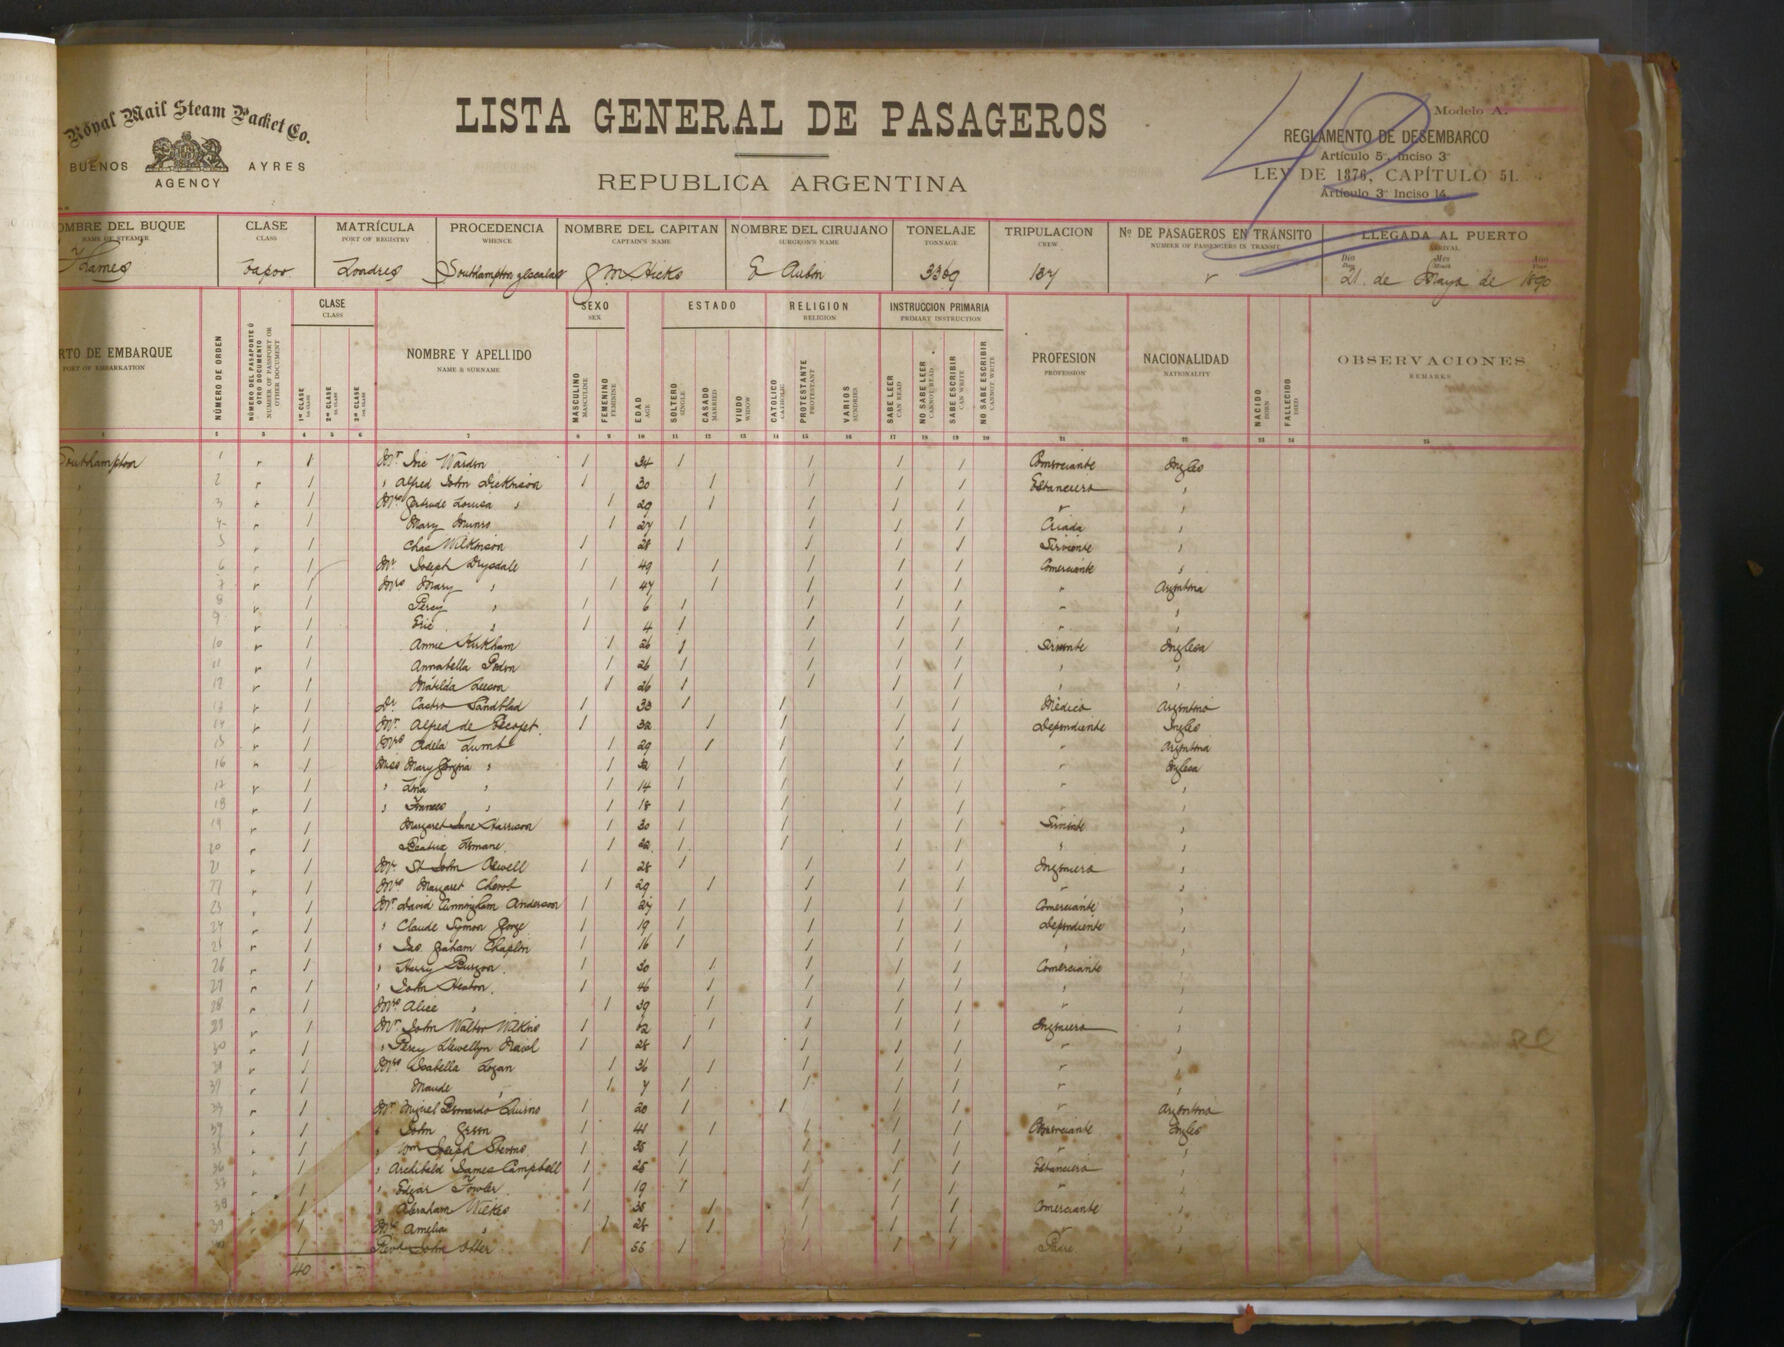 Royal Mail Steam Packet Co.
BUENOS AYRES
AGENCY
LISTA GENERAL DE PASAGEROS
REPUBLICA ARGENTINA
42
Modelo A.
REGLAMENTO DE DESEMBARCO
Artículo 5º, Inciso 3º
LEY DE 1876, CAPÍTULO 51.
Artículo 3º Inciso 14.
OMBRE DEL BUQUE CLASE MATRÍCULA PROCEDENCIA NOMBRE DEL CAPITAN NOMBRE DEL CIRUJANO TONELAJE TRIPULACION Nº DE PASAGEROS EN TRÁNSITO LLEGADA AL PUERTO
NAME OF STEAMER CLASS PORT OF REGISTRY WHENCE CAPTAIN'S NAME SURGEON'S NAME TONNAGE CREW NUMBER OF PASSENGERS IN TRANSIT ARRIVAL
Día Day Mes Month Año Year
Thames Vapor Londres Southampton y escalas J M Hicks E Aubin 3369 137 " 21 de Mayo de 1890
RTO DE EMBARQUE PORT OF EMBARKATION
NÚMERO DE ORDEN
NÚMERO DEL PASAPORTE Ú OTRO DOCUMENTO NUMBER OF PASSPORT OR OTHER DOCUMENT
CLASE CLASS
1ª CLASE 2ª CLASE 3ª CLASE
NOMBRE Y APELLIDO NAME & SURNAME
SEXO SEX
MASCULINO MASCULINE FEMENINO FEMININE
EDAD AGE
ESTADO
SOLTERO SINGLE CASADO MARRIED VIUDO WIDOW
RELIGION RELIGION
CATOLICO CATHOLIC PROTESTANTE PROTESTANT VARIOS SUNDRIES
INSTRUCCION PRIMARIA PRIMARY INSTRUCTION
SABE LEER CAN READ NO SABE LEER CANNOT READ SABE ESCRIBIR CAN WRITE NO SABE ESCRIBIR CANNOT WRITE
PROFESION PROFESSION
NACIONALIDAD NATIONALITY
NACIDO BORN FALLECIDO DIED
OBSERVACIONES REMARKS
1 2 3 4 5 6 7 8 9 10 11 12 13 14 15 16 17 18 19 20 21 22 23 24 25
Southampton 1 " / Mr Warden / 34 / / / / Comerciante Ingles
" 2 " / " Alfred John Dickinson / 30 / / / / Estanciero "
" 3 " / Mrs Gertrude Louisa " / 29 / / / / " "
" 4 " / Mary Munro / 27 / / / / Criada "
" 5 " / Chas Wilkinson / 28 / / / / Sirviente "
" 6 " / Mr Joseph Drysdale / 49 / / / / Comerciante "
" 7 " / Mrs Mary " / 47 / / / / " Argentina
" 8 " / Percy " / 6 / / / / " "
" 9 " / Eric " / 4 / / / / " "
" 10 " / Annie Kirkham / 26 / / / / Sirviente Inglesa
" 11 " / Annabella / 26 / / / / " "
" 12 " / Matilda Leeson / 26 / / / / " "
" 13 " / Dr Castro Sandblad / 33 / / / / Medico Argentino
" 14 " / Mr Alfred de / 32 / / / / Dependiente Ingles
" 15 " / Mrs Adela Lumb / 29 / / / / " Argentina
" 16 " / Miss Mary Georgina " / 32 / / / / " Inglesa
" 17 " / " " / 14 / / / / " "
" 18 " / " Frances " / 18 / / / / " "
" 19 " / Margaret Jane Harrison / 30 / / / / Sirviente "
" 20 " / Beatrix / 22 / / / / " "
" 21 " / Mr St John / 28 / / / / Ingeniero "
" 22 " / Mrs Margaret / 29 / / / / " "
" 23 " / Mr David Cunningham Anderson / 27 / / / / Comerciante "
" 24 " / " Claude Symon George / 19 / / / / Dependiente "
" 25 " / " Jas. Graham Chaplin / 16 / / / / " "
" 26 " / " Harry / 30 / / / / Comerciante "
" 27 " / " John Heaton / 46 / / / / " "
" 28 " / Mrs Alice " / 39 / / / / " "
" 29 " / Mr John Walter Wilkins / 62 / / / / Ingeniero "
" 30 " / " Percy Llewellyn / 28 / / / / " "
" 31 " / Mrs Isabella Logan / 36 / / / / " "
" 32 " / Maude " / 7 / / " "
" 33 " / Mr Miguel Bernardo Quirno / 20 / / / / " Argentina
" 34 " / " John Green / 41 / / / / Comerciante Ingles
" 35 " / " Wm Joseph Stevens / 35 / / / / " "
" 36 " / " Archibald James Campbell / 25 / / / / Estanciero "
" 37 " / " Edgar Fowler / 19 / / / / " "
" 38 " / " Abraham Wilkes / 38 / / / / Comerciante "
" 39 " / Mrs Amelia " / 28 / / / / " "
" 40 " / Revd John Otter / 55 / / / / "
40